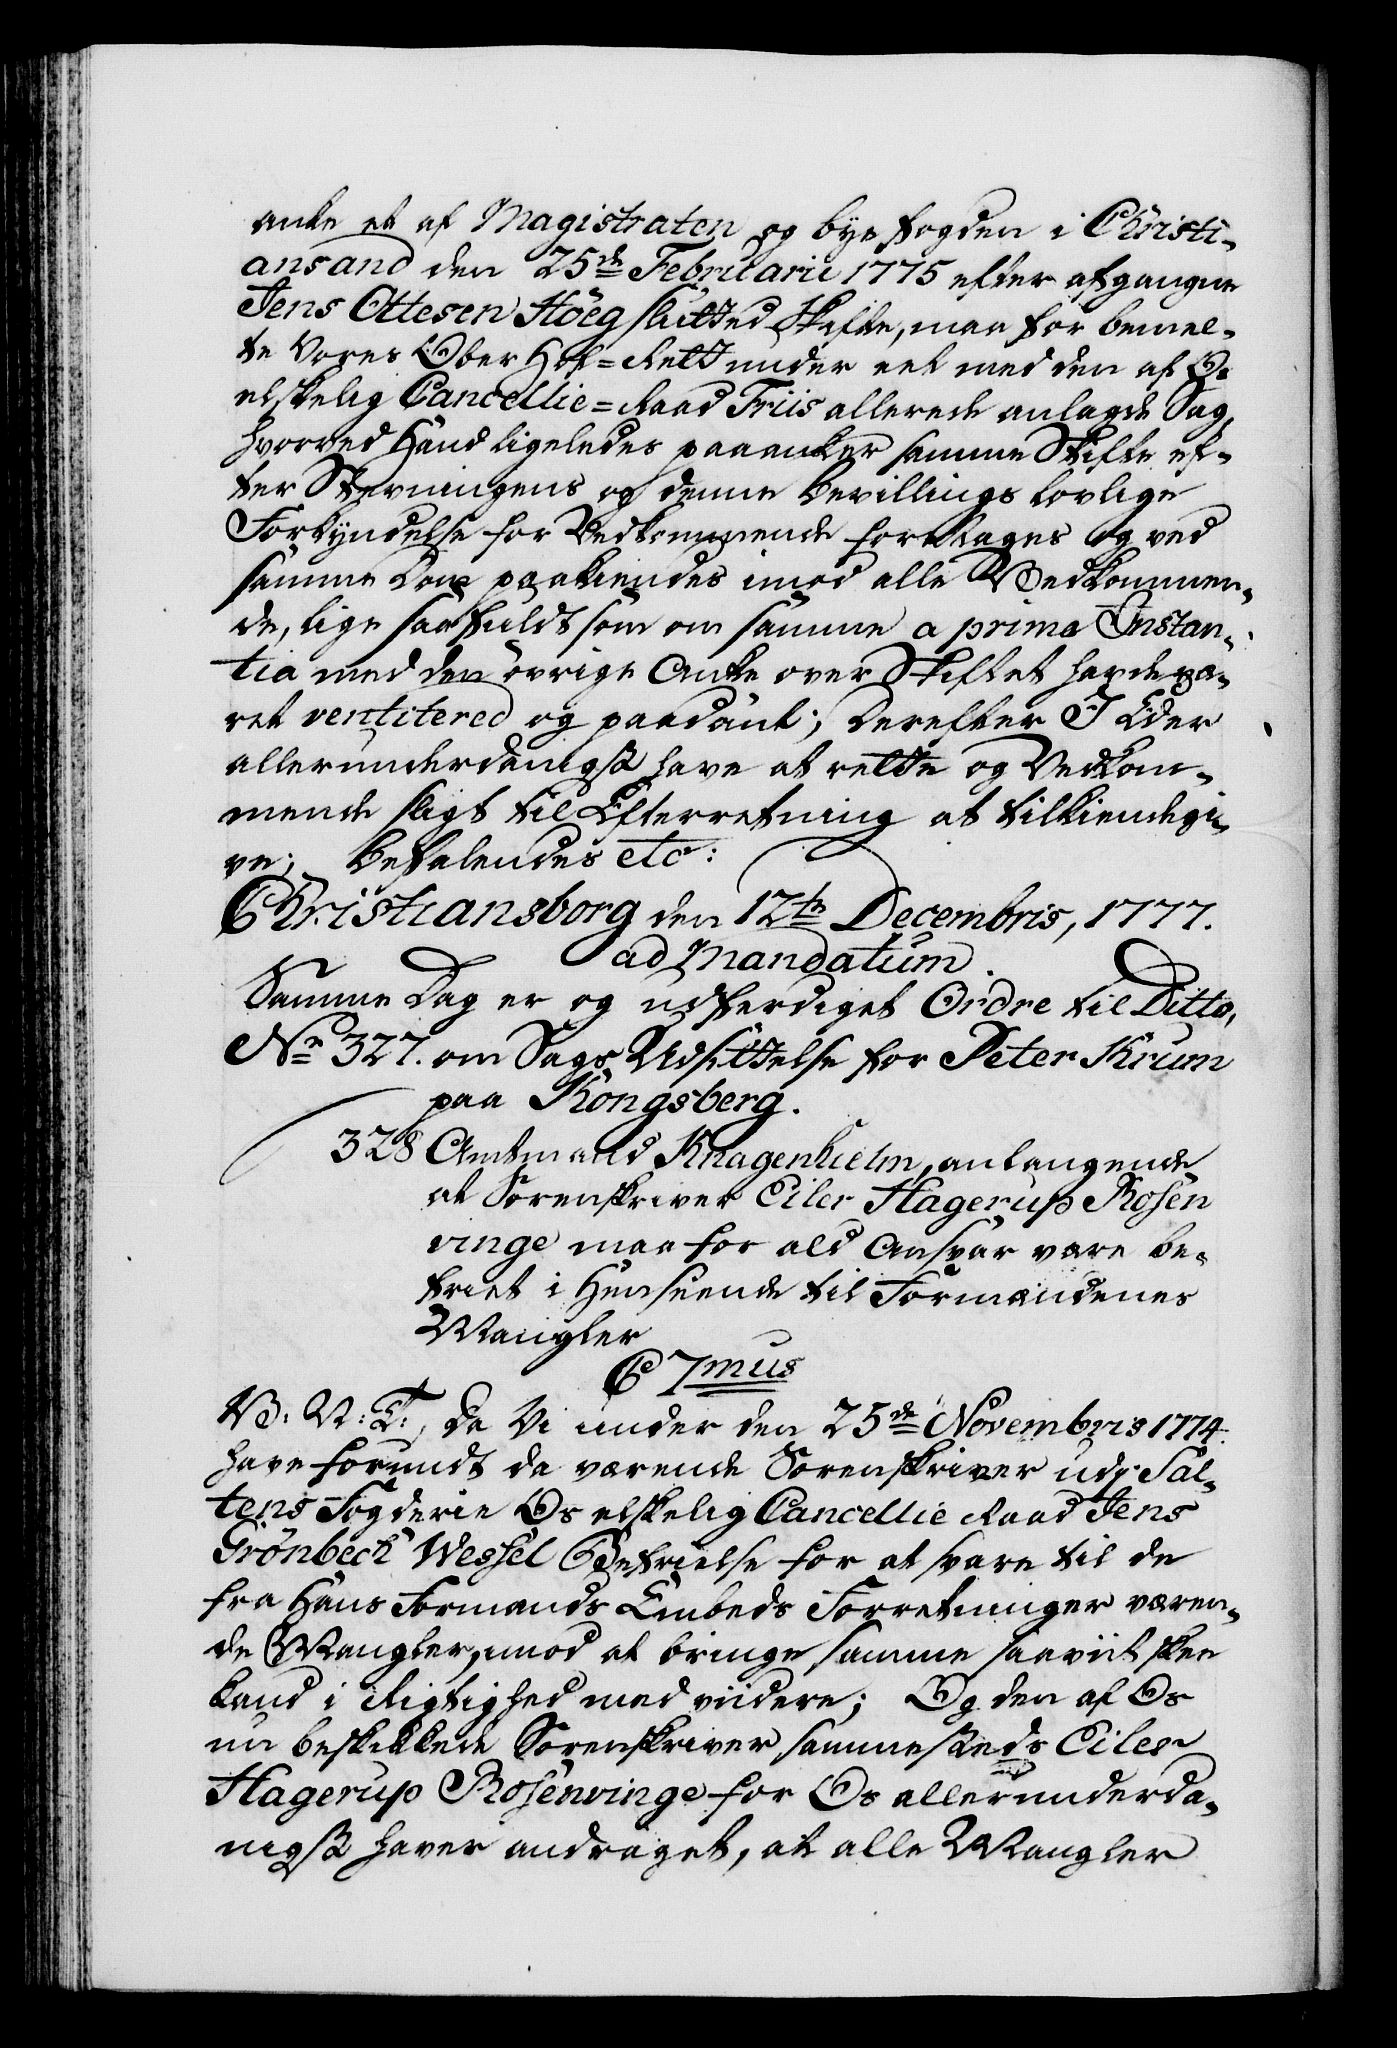 anke et af Magistraten og bye fogden i Christi-
ansand den 25de Februarii 1775 efter afgangne
Jens Ottesen Höeg slutted Skifte, maa for bemel-
te Vores Ober Hof-Rett under eet med den af Os
elskelig Cancellie-Raad Friis allerede anlagde Sag,
hvorved Hand ligeledes paaanker samme Skifte ef-
ter Stevningens og denne bevillings lovlige
Forkyndelse for Vedkommende foretages og ved
samme Dom paakiendes imod alle Vedkommen-
de, lige saa fuldt som om samme a prima Instan-
tia med den övrige Anke over Skiftet havde væ-
ret ventilered og paadömt; Derefter I Eder
allerunderdanigst have at rette og Vedkom-
mende sligt til Efterretning at tilkiendegi-
ve; Befalendes etc:
Christiansborg den 12te Decembris, 1777.
ad Mandatum.
Samme Dag er og udferdiget Ordre til Ditto,
No 327. om Sags Udsættelse for Peter Krum
paa Kongsberg.
328 Amtmand Knagenhielm, anlangende
at Sorenskriver Eiler Hagerup Rosen
vinge maa for ald Ansvar være be-
friet i Henseende til Formændenes
Mangler
C 7mus
V: V: G:, Da Vi under den 25de Novembris 1774
have forundt da værende Sorenskriver udj Sal-
tens Fogderie Os elskelig Cancellie Raad Jens
Grönbeck Wessel Befrielse for at svare til de
fra Hans Formands Embeds Forretninger væren-
de Mangler, imod at bringe samme saavit skee
kand i Rigtighed med viidere; Og den af Os
nu beskikkede Sorenskriver sammesteds Eiler
Hagerup Rosenvinge for Os allerunderda-
nigst haver andraget, at alle Mangler